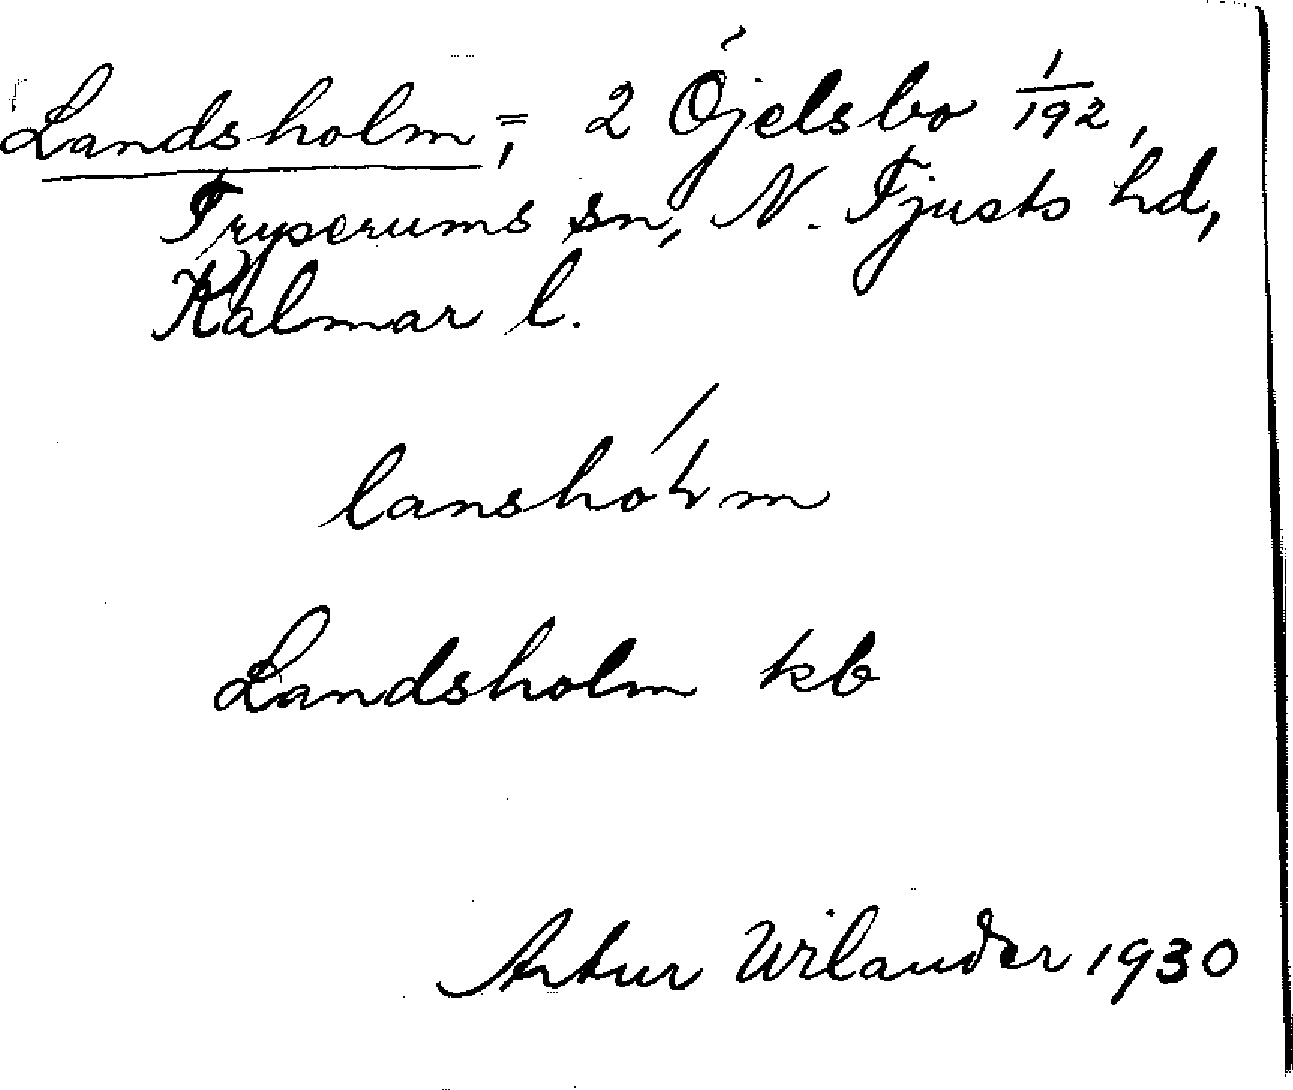 Landsholm, = 2 Öjelsbo 1/192,
Tryserums sn, N. Tjusts hd,
Kalmar l.
Landsholm kb
Artur Wilander 1930